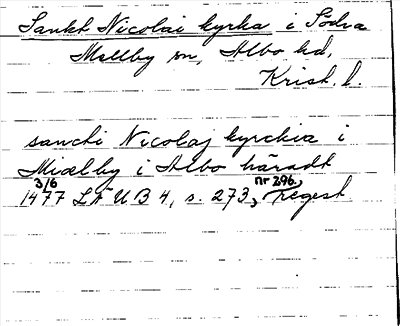 Sankt Nicolai kyrka i Södra
Mellby sn, Albo hd,
Krist. l.
sancti Nicolaj kyrckia i
Miælby i Albo häradt
3/6 nr 296,
1477 LÄUB 4, s. 273, regest